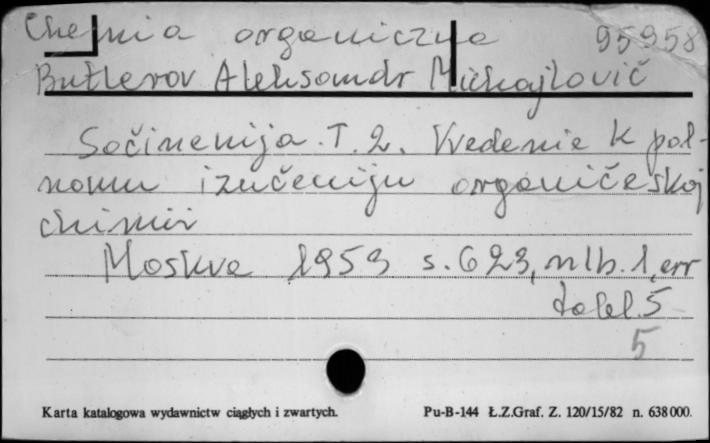 Chemia organiczna 95958
Butlerov Aleksandr Michajlovič
Sočinenija. T. 2. Vvedenie k pol-
nomu izučeniju organičeskoj
chimii
Moskva 1953 s. 623, nlb. 1, err
tabl. 5
5
Karta katalogowa wydawnictw ciągłych i zwartych. Pu-B-144 Ł.Z.Graf. Z. 120/15/82 n. 638000.